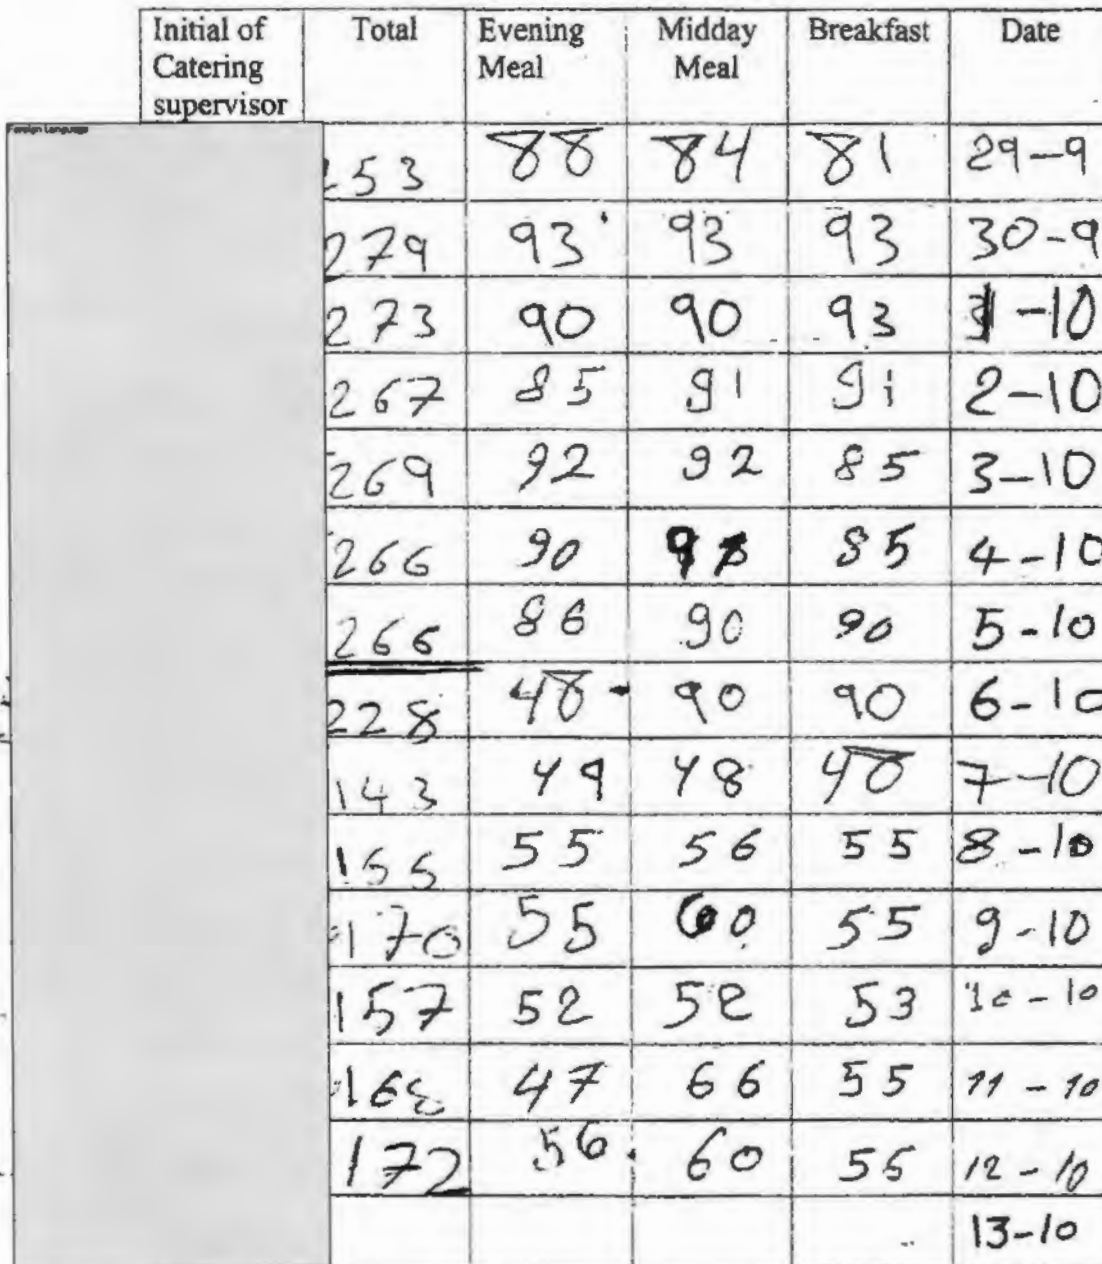 Initial of Catering supervisor Total Evening Meal Midday Meal Breakfast Date
Foreign Language
253 88 84 81 29-9
279 93 93 93 30-9
273 90 90 93 1-10
267 85 91 91 2-10
269 92 92 85 3-10
266 90 85 4-10
266 86 90 90 5-10
228 48 90 90 6-10
143 49 48 48 7-10
55 56 55 8-10
170 55 60 55 9-10
157 52 52 53 10-10
168 47 66 55 11-10
172 56 60 56 12-10
13-10